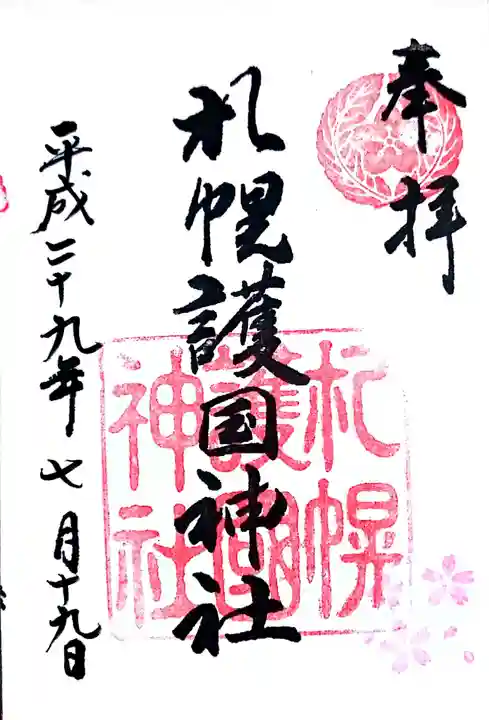 奉拝
札幌護国神社
札幌
護國
神社
平成二十九年七月十九日